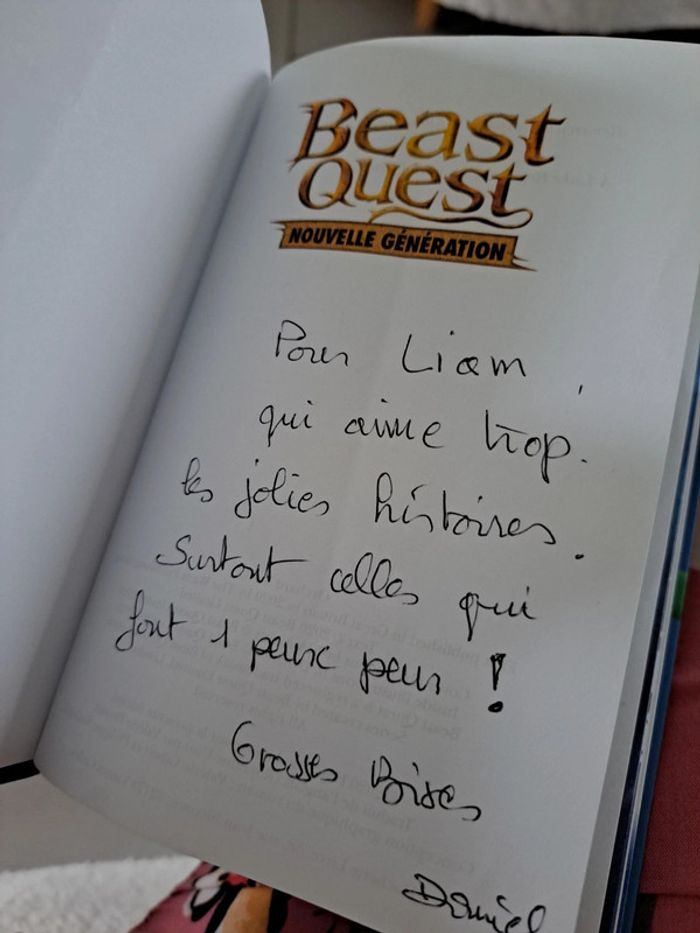 Beast
Quest
NOUVELLE GÉNÉRATION
Pour Liam,
qui aime trop.
les jolies histoires.
Surtout celles qui
font 1 peux peur !
Grosses Bises
Daniel